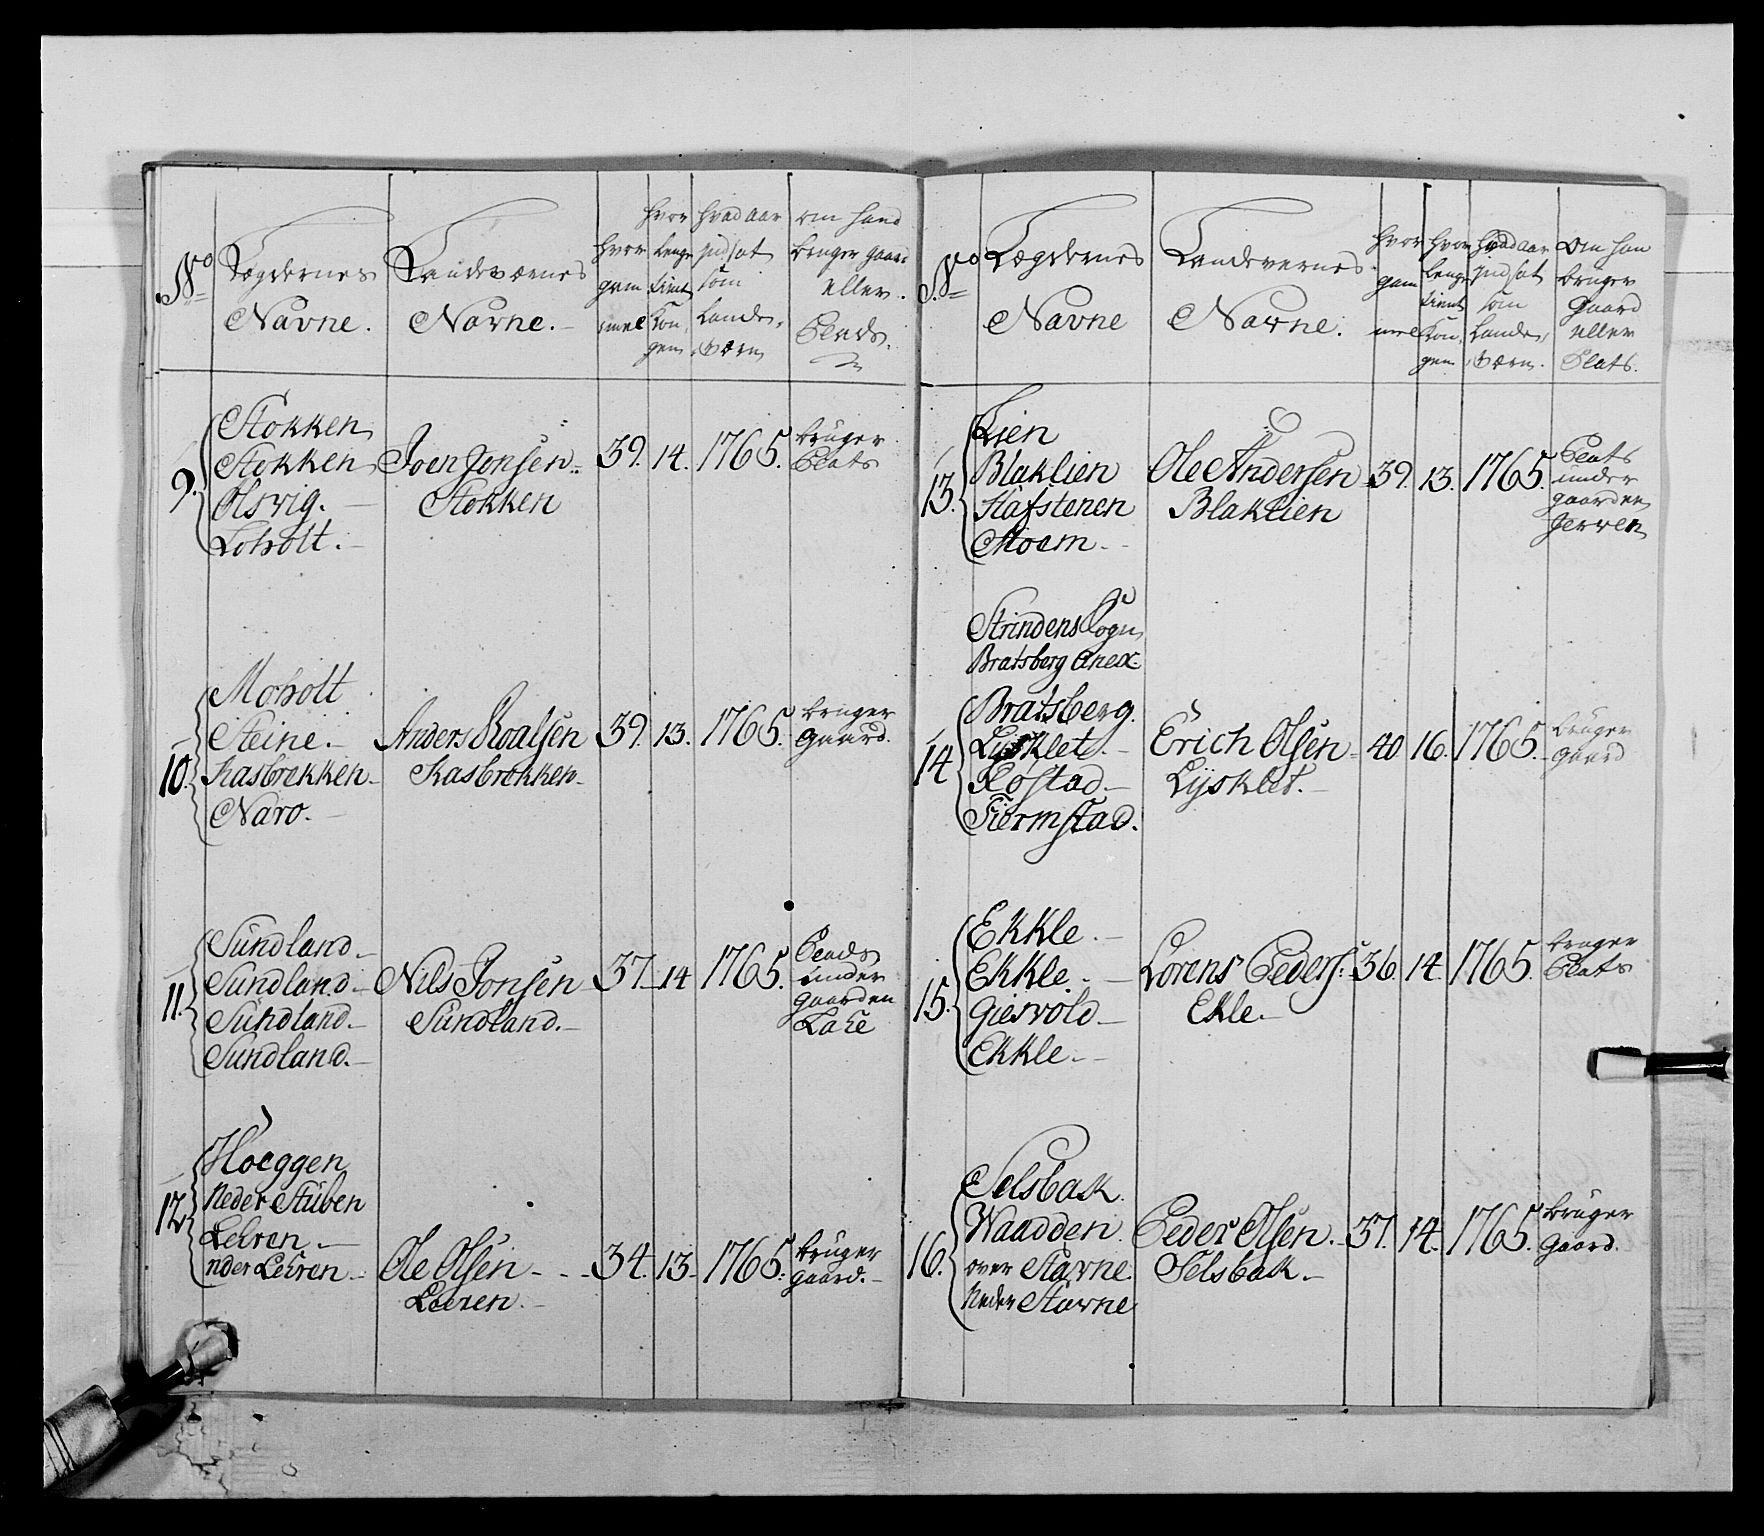 No
Lægdernes
Navne.
Landeværnes
Navne.
hvor
gam
mel
hvor
lenge
tient
Kon
gen
hvad aar
indsat
som
Lande,
værn
om hand
bruger gaard
eller
Plads.
9.
Stokken
Stokken
Olsvig.
Loholt.
Joen Jonsen.
Stokken
39.
14.
1765.
bruger
Plats
10.
Moholt
Steine.
Kasbrekken
Naro.
Anders Roalsen
Kasbrokken
39.
13.
1765.
bruger
Gaard.
11.
Sundland
Sundland
Sundland
Sundland.
Nils Jonsen
Sundland.
37.
14
1765.
Plads
under
gaarden
12
Hoeggen
Neder Stuben
Leeren
nder Leeren
Ole Olsen
Leeren.
34.
13
1765.
bruger
gaard.
No
Lægdernes
Navne
Landevernes
Navne.
hvor
gam
mel
hvor
lenge
tient
Kon,
gen
hvad aar
indsat
som
Lande,
værn.
Om han
bruger
Gaard
eller
Plats.
13.
Lien
Blaklien
Hafstenen
Moem.
Ole Andersen
Blaklien
39.
13.
1765.
Plats
under
gaarden
Jerven
Strindens Sogn
Bratsberg Anex.
14
Bratsberg.
Lysklet.
Rostad
Tiermstad.
Erich Olsen
Lysklet.
40
16.
1765.
bruger
Gaard
15.
Ekkle.
Ekkle.
Giesvold
Ekkle.
Lorens Peders:
Ekle.
36.
14.
1765.
bruger
Plats
16.
Selsbak.
Waadden
over Stavne.
Neder Stavne
Peder Olsen.
Selsbak.
37.
14.
1765.
bruger
Gaard.